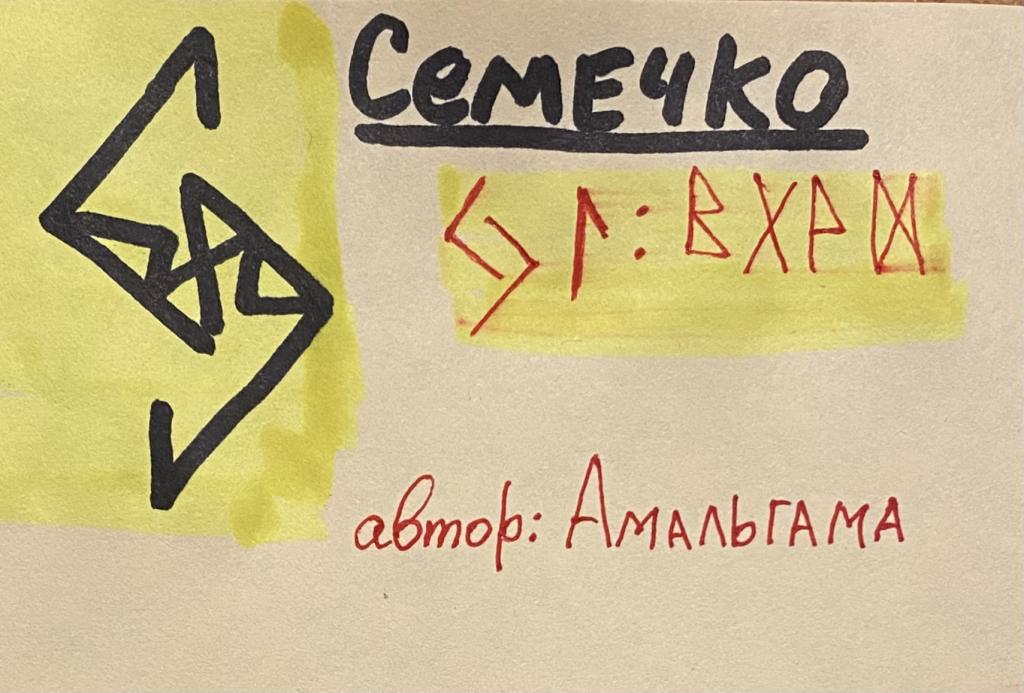 Семечко
ᛃ ᛚ : ᛒ ᚷ ᚹ ᛞ
автор: Амальгама